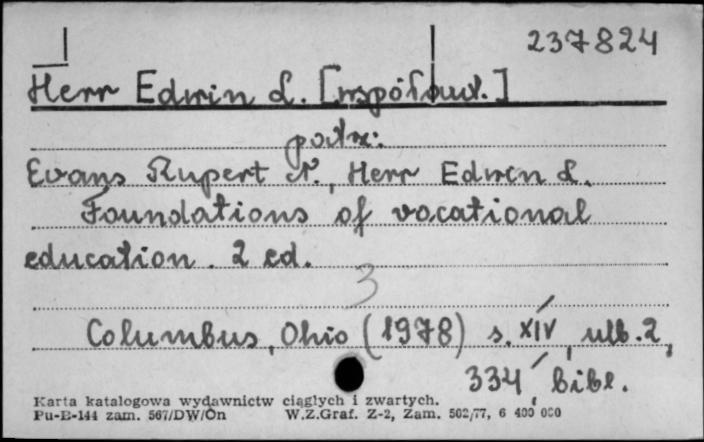 237824
Herr Edwin L. [współaut.]
patrz:
Evans Rupert N., Herr Edwin L.
Foundations of vocational
education. 2 ed.
3
Columbus, Ohio (1978) s. XIV, ulb. 2,
334, bibl.
Karta katalogowa wydawnictw ciągłych i zwartych.
Pu-B-144 zam. 567/DW/Ön W.Z.Graf. Z-2, Zam. 502/77, 6 400 000